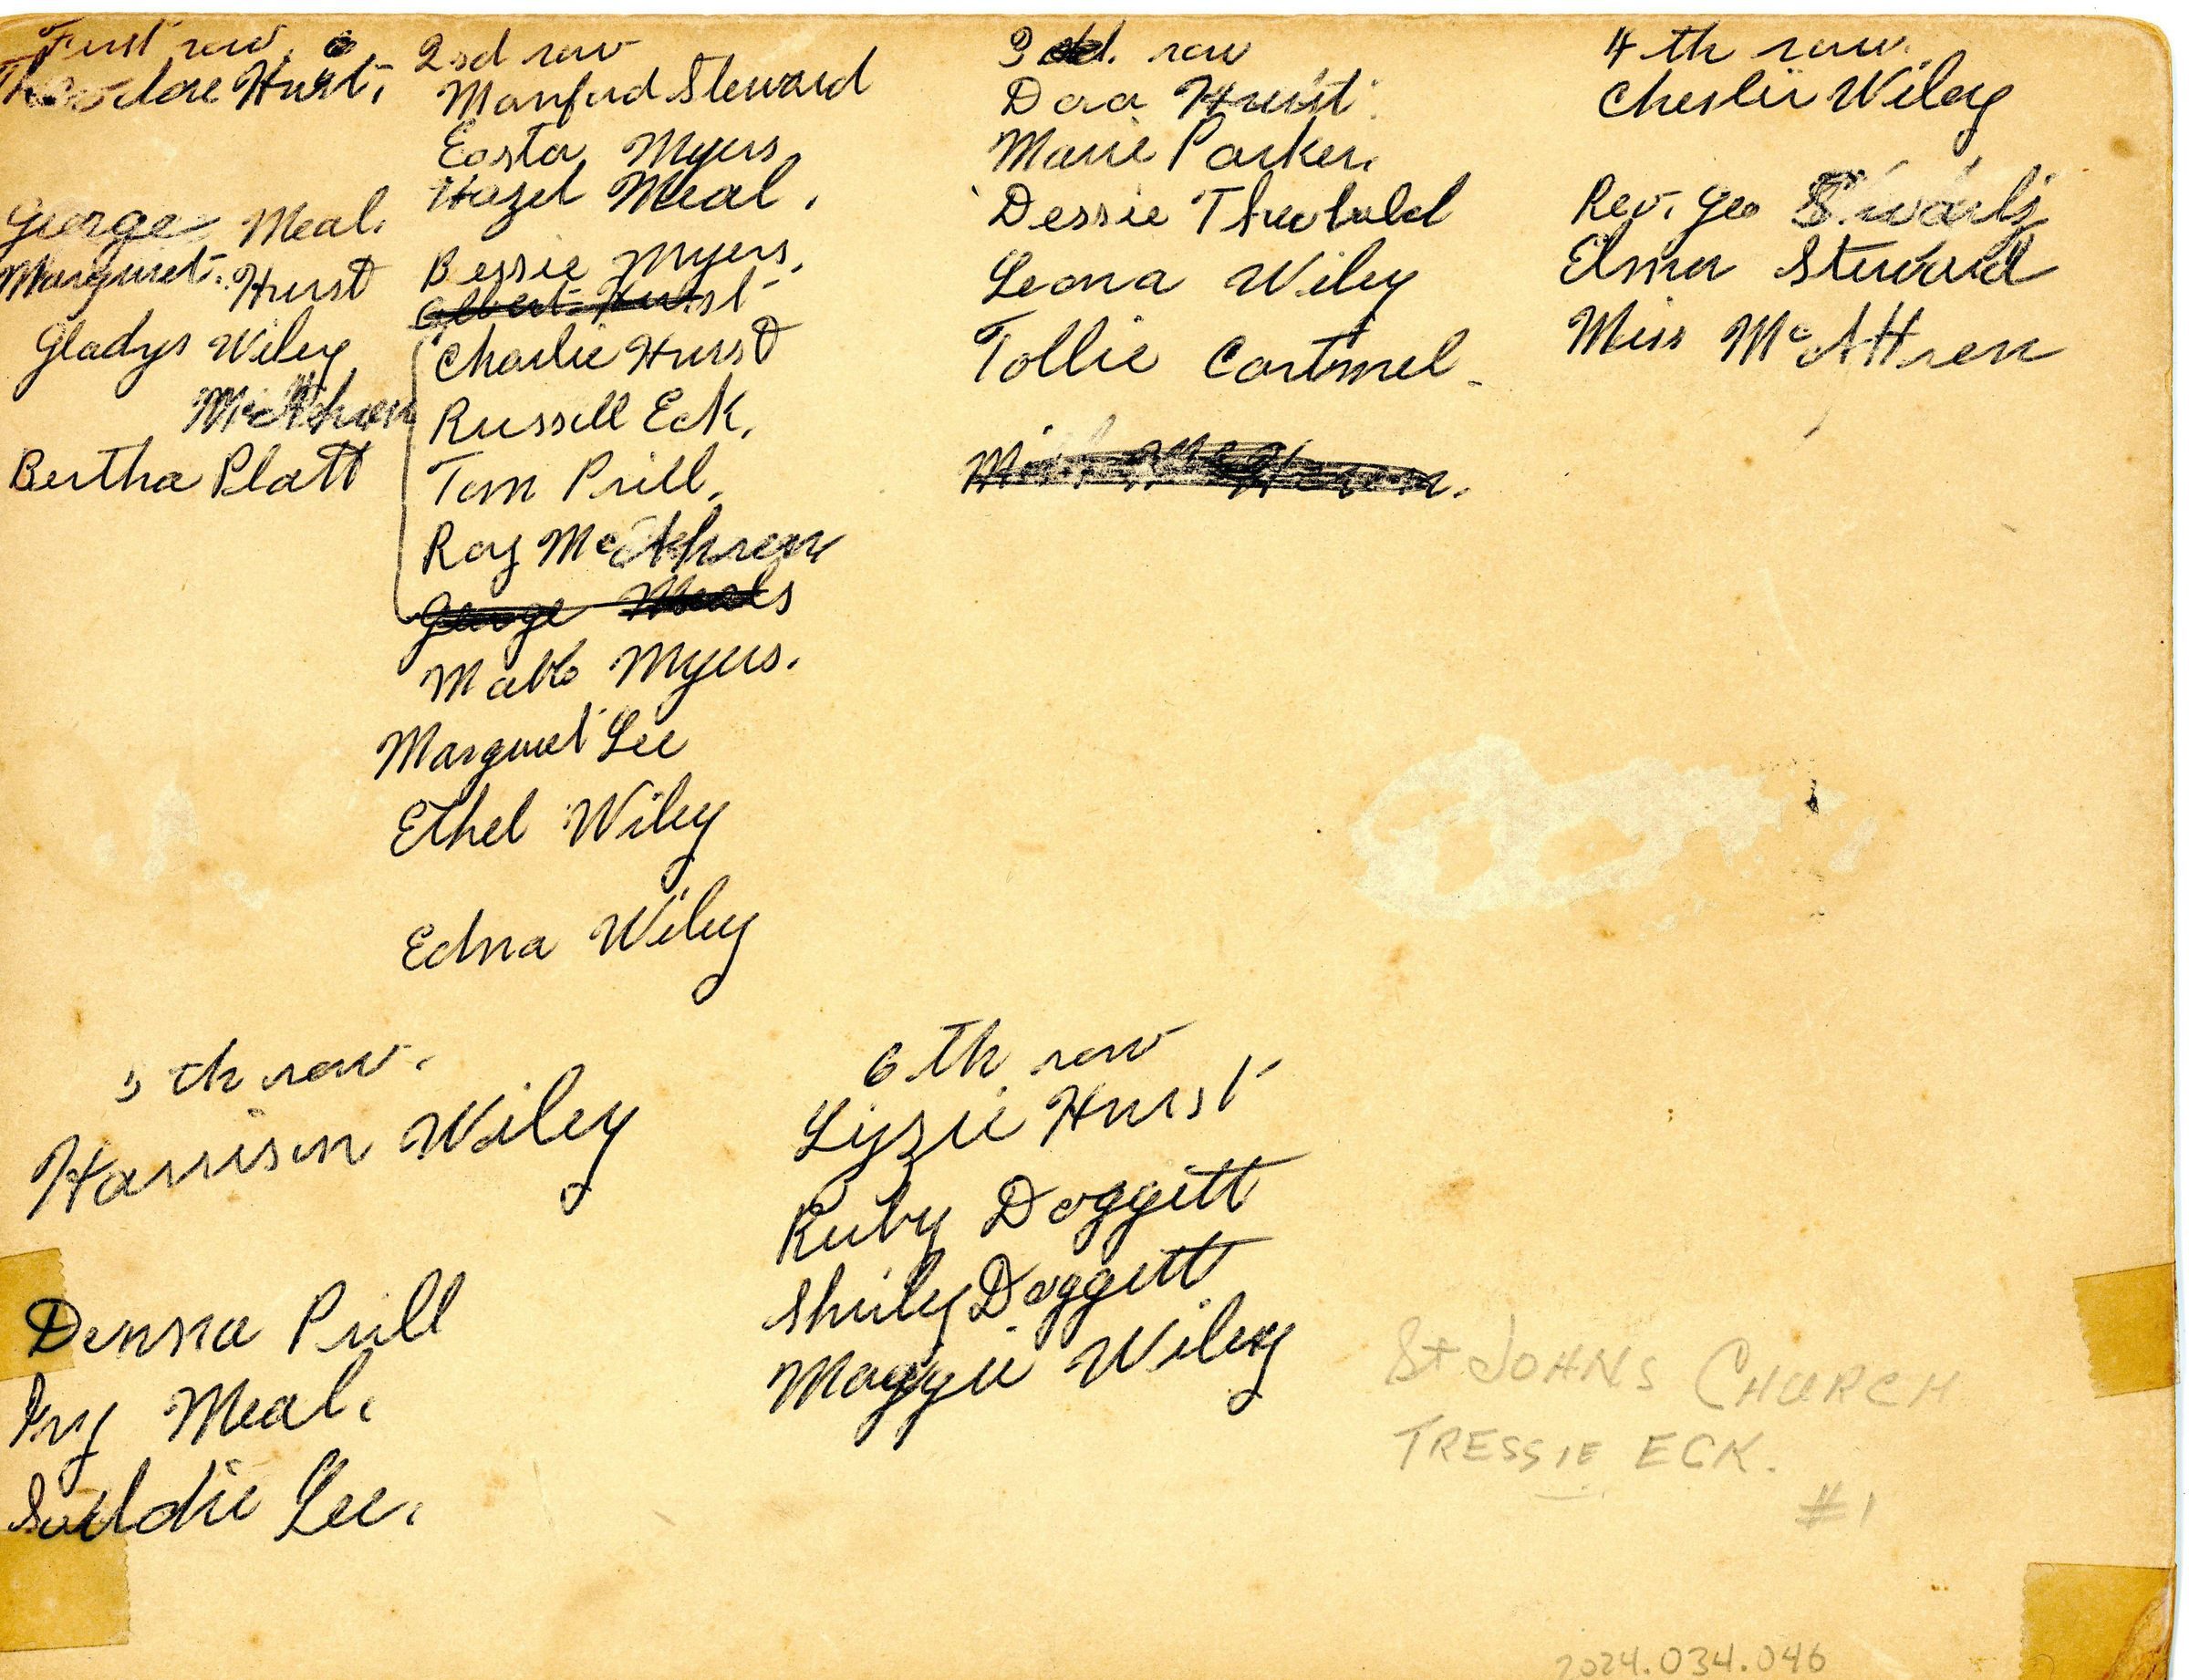 First row.
Theodore Hurst.
George Meal.
Margaret Hurst
Gladys Wiley
Bertha Platt
2nd row
Manford Steward
Easta Myers
Hazel Meal.
Bessie Myers.
Albert Hurst
Charlie Hurst
Russell Eck.
Tom Prill.
Roy
George Meals
Myers.
Margaret Lee
Ethel Wiley
Edna Wiley
3 row
Dora Hurst
Marie Parker.
Dessie Theobald
Leona Wiley
Tollie Cartmel.
4th row.
Cheslie Wiley
Rev. Geo Swartz
Elmer Steward
Miss McAttren
5th row.
Harrison Wiley
Denna Prill
Ivy Meal.
Lee.
6th row
Lizzie Hurst
Ruby Doggett
Shirley Doggett
Maggie Wiley
St JOHNS CHURCH
TRESSIE ECK.
#1
2024.034.046